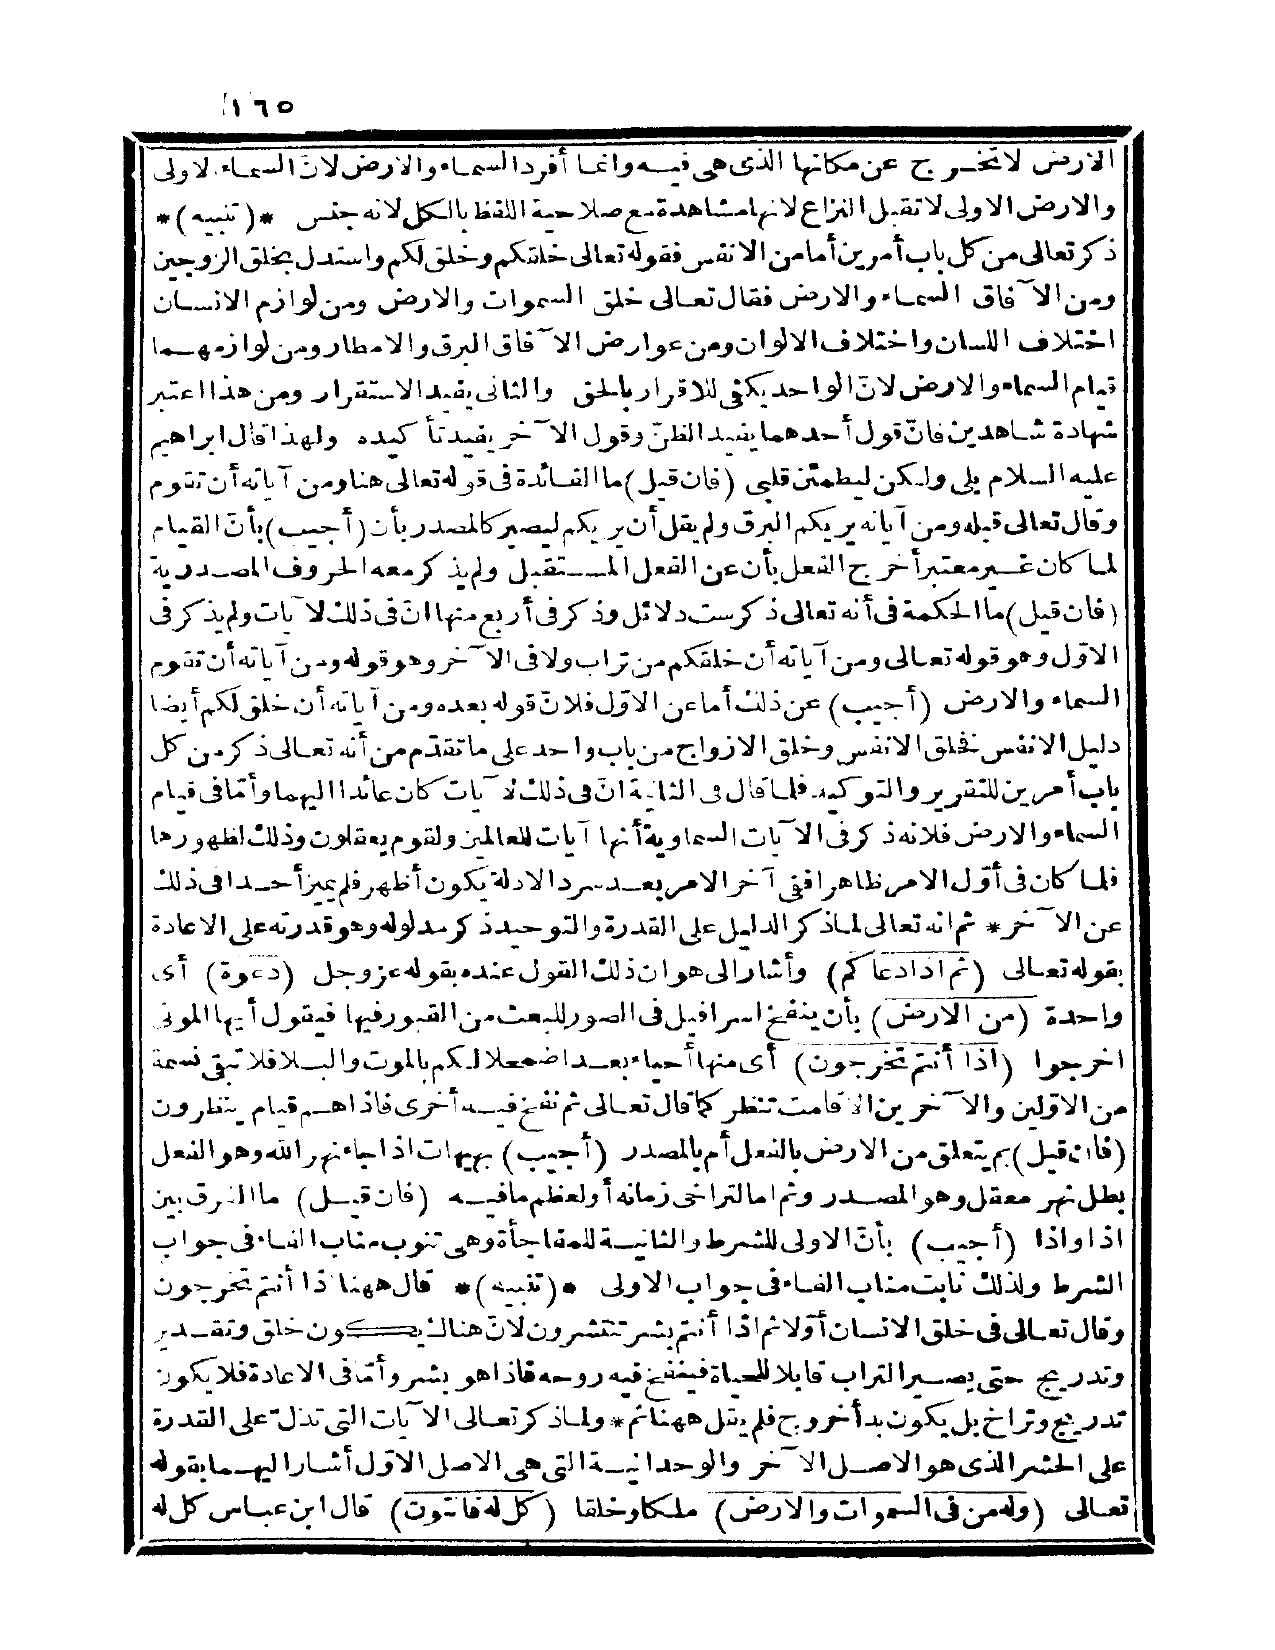 ١٦٥
الارض لا تخرج عن مكانها الذى هى فيه وانما أفرد السماء والارض لانّ السماء الاولى
والارض الاولى لا تقبل النزاع لانها مشاهدة مع صلاحية اللفظ بالكل لانه جنس *(تنبيه)*
ذكر تعالى من كل باب أمرين أما من الانفس فقوله تعالى خلقكم وخلق لكم واستدل بخلق الزوجين
ومن الآفاق السماء والارض فقال تعالى خلق السموات والارض ومن لوازم الانسان
اختلاف اللسان واختلاف الالوان ومن عوارض الآفاق البرق والامطار ومن لوازمهما
قيام السماء والارض لانّ الواحد يكفى للاقرار بالحق والثانى يفيد الاستقرار ومن هذا اعتبر
شهادة شاهدين فانّ قول أحدهما يفيد الظنّ وقول الآخر يفيد تأكيده ولهذا قال ابراهيم
عليه السلام بلى ولكن ليطمئن قلبى (فان قيل) ما الفائدة فى قوله تعالى هنا ومن آياته أن تقوم
وقال تعالى قبله ومن آياته يريكم البرق ولم يقل أن يريكم ليصير كالمصدر بأن (أجيب) بأنّ القيام
لما كان غير معتبر أخرج الفعل بأن عن الفعل المستقبل ولم يذكر معه الحروف المصدرية
(فان قيل) ما الحكمة فى أنه تعالى ذكر ست دلائل وذكر فى أربع منها انّ فى ذلك لآيات ولم يذكر فى
الاوّل وهو قوله تعالى ومن آياته أن خلقكم من تراب ولا فى الآخر وهو قوله ومن آياته أن تقوم
السماء والارض (أجيب) عن ذلك أما عن الاوّل فلانّ قوله بعده ومن آياته أن خلق لكم أيضا
دليل الانفس فخلق الانفس وخلق الازواج من باب واحد على ما تقدّم من أنه تعالى ذكر من كل
باب أمرين للتقرير والتوكيد فلما قال فى الثانية انّ فى ذلك لآيات كان عائدا اليهما وأمّا فى قيام
السماء والارض فلانه ذكر فى الآيات السماوية أنها آيات للعالمين ولقوم يعقلون وذلك لظهورها
فلما كان فى أوّل الامر ظاهرا ففى آخر الامر بعد سرد الادلة يكون أظهر فلم يميز أحدا فى ذلك
عن الآخر* ثم انه تعالى لما ذكر الدليل على القدرة والتوحيد ذكر مدلوله وهو قدرته على الاعادة
بقوله تعالى (ثم اذا دعاكم) وأشار الى هوان ذلك القول عنده بقوله عز وجل (دعوة) أى
واحدة (من الارض) بأن ينفخ اسرافيل فى الصور للبعث من القبور فيها فيقول أيها الموتى
اخرجوا (اذا أنتم تخرجون) أى منها أحياء بعد اضمحلالكم بالموت والبلا فلا تبقى نسمة
من الاوّلين والآخرين الا قامت تنظر كما قال تعالى ثم نفخ فيه أخرى فاذا هم قيام ينظرون
(فان قيل) بم يتعلق من الارض بالفعل أم بالمصدر (أجيب) بهيهات اذا جاء نهر الله وهو الفعل
بطل نهر معقل وهو المصدر وثم اما لتراخى زمانه أو لعظم ما فيه (فان قيل) ما الفرق بين
اذا واذا (أجيب) بأنّ الاولى للشرط والثانية للمفاجأة وهى تنوب مناب الفاء فى جواب
الشرط ولذلك نابت مناب الفاء فى جواب الاولى *(تنبيه)* قال ههنا اذا أنتم تخرجون
وقال تعالى فى خلق الانسان أوّلا ثم اذا أنتم بشر تنتشرون لانّ هناك يكون خلق وتقدير
وتدريج حتى يصير التراب قابلا للحياة فينفخ فيه روحه فاذا هو بشر وأمّا فى الاعادة فلا يكون
تدريج وتراخ بل يكون بدأ خروج فلم يقل ههنا ثم* ولما ذكر تعالى الآيات التى تدل على القدرة
على الحشر الذى هو الاصل الآخر والوحدانية التى هى الاصل الاوّل أشار اليهما بقوله
تعالى (وله من فى السموات والارض) ملكا وخلقا (كل له قانتون) قال ابن عباس كل له